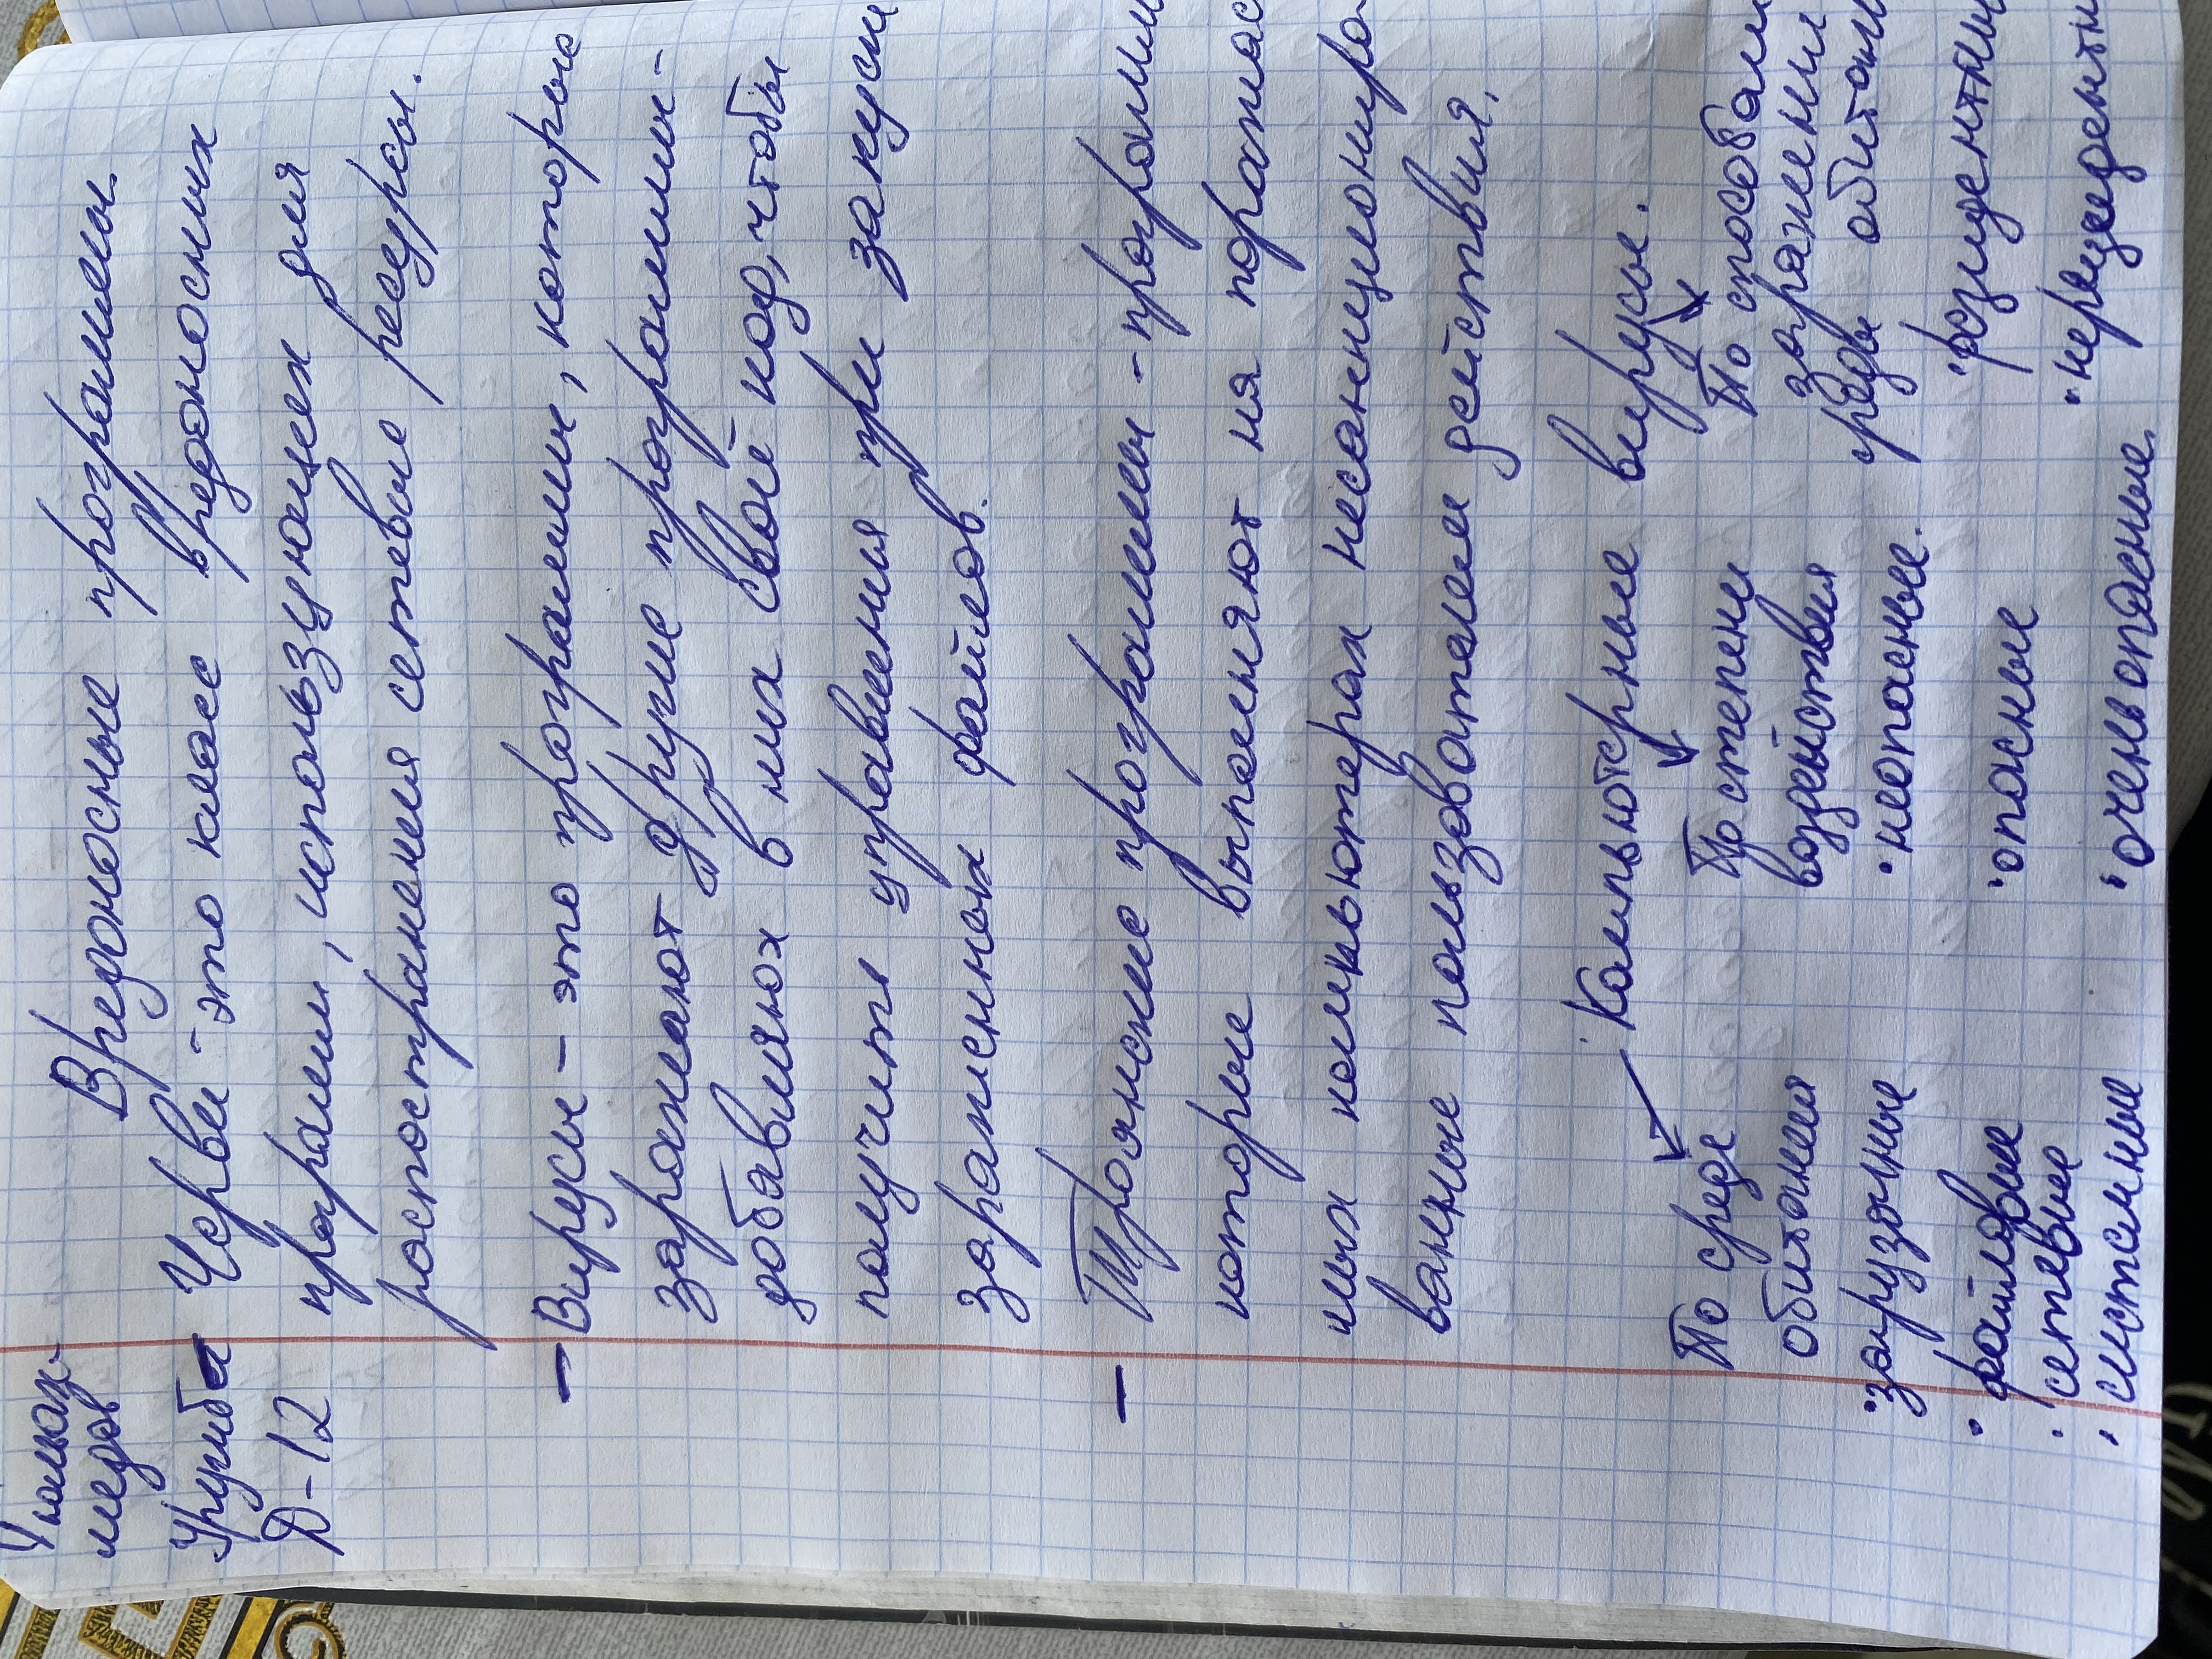 Вредоносные программы.
Черви - это класс вредоносных
Группа
Д-12
программ, использующех для
распостранения сетевые ресурсы.
– Вирусы – это программы, которые
заражают другие программы-
добавляют в них свой код, чтобы
получить управления при запуски
зараженных файлов.
– Троянские программы - программ
которые выполняют на поражас
мых компьютерах несанкциониро-
ванные пользователем действия.
Компьютерные вирусы.
По среде
обитания
• загрузочные
• файловые
• сетевые
• системные
По степени
воздействия
• неопасные.
• опасные
• очень опасные.
По способам
заражения
среды обитани
• резидентны
• нерезидентн